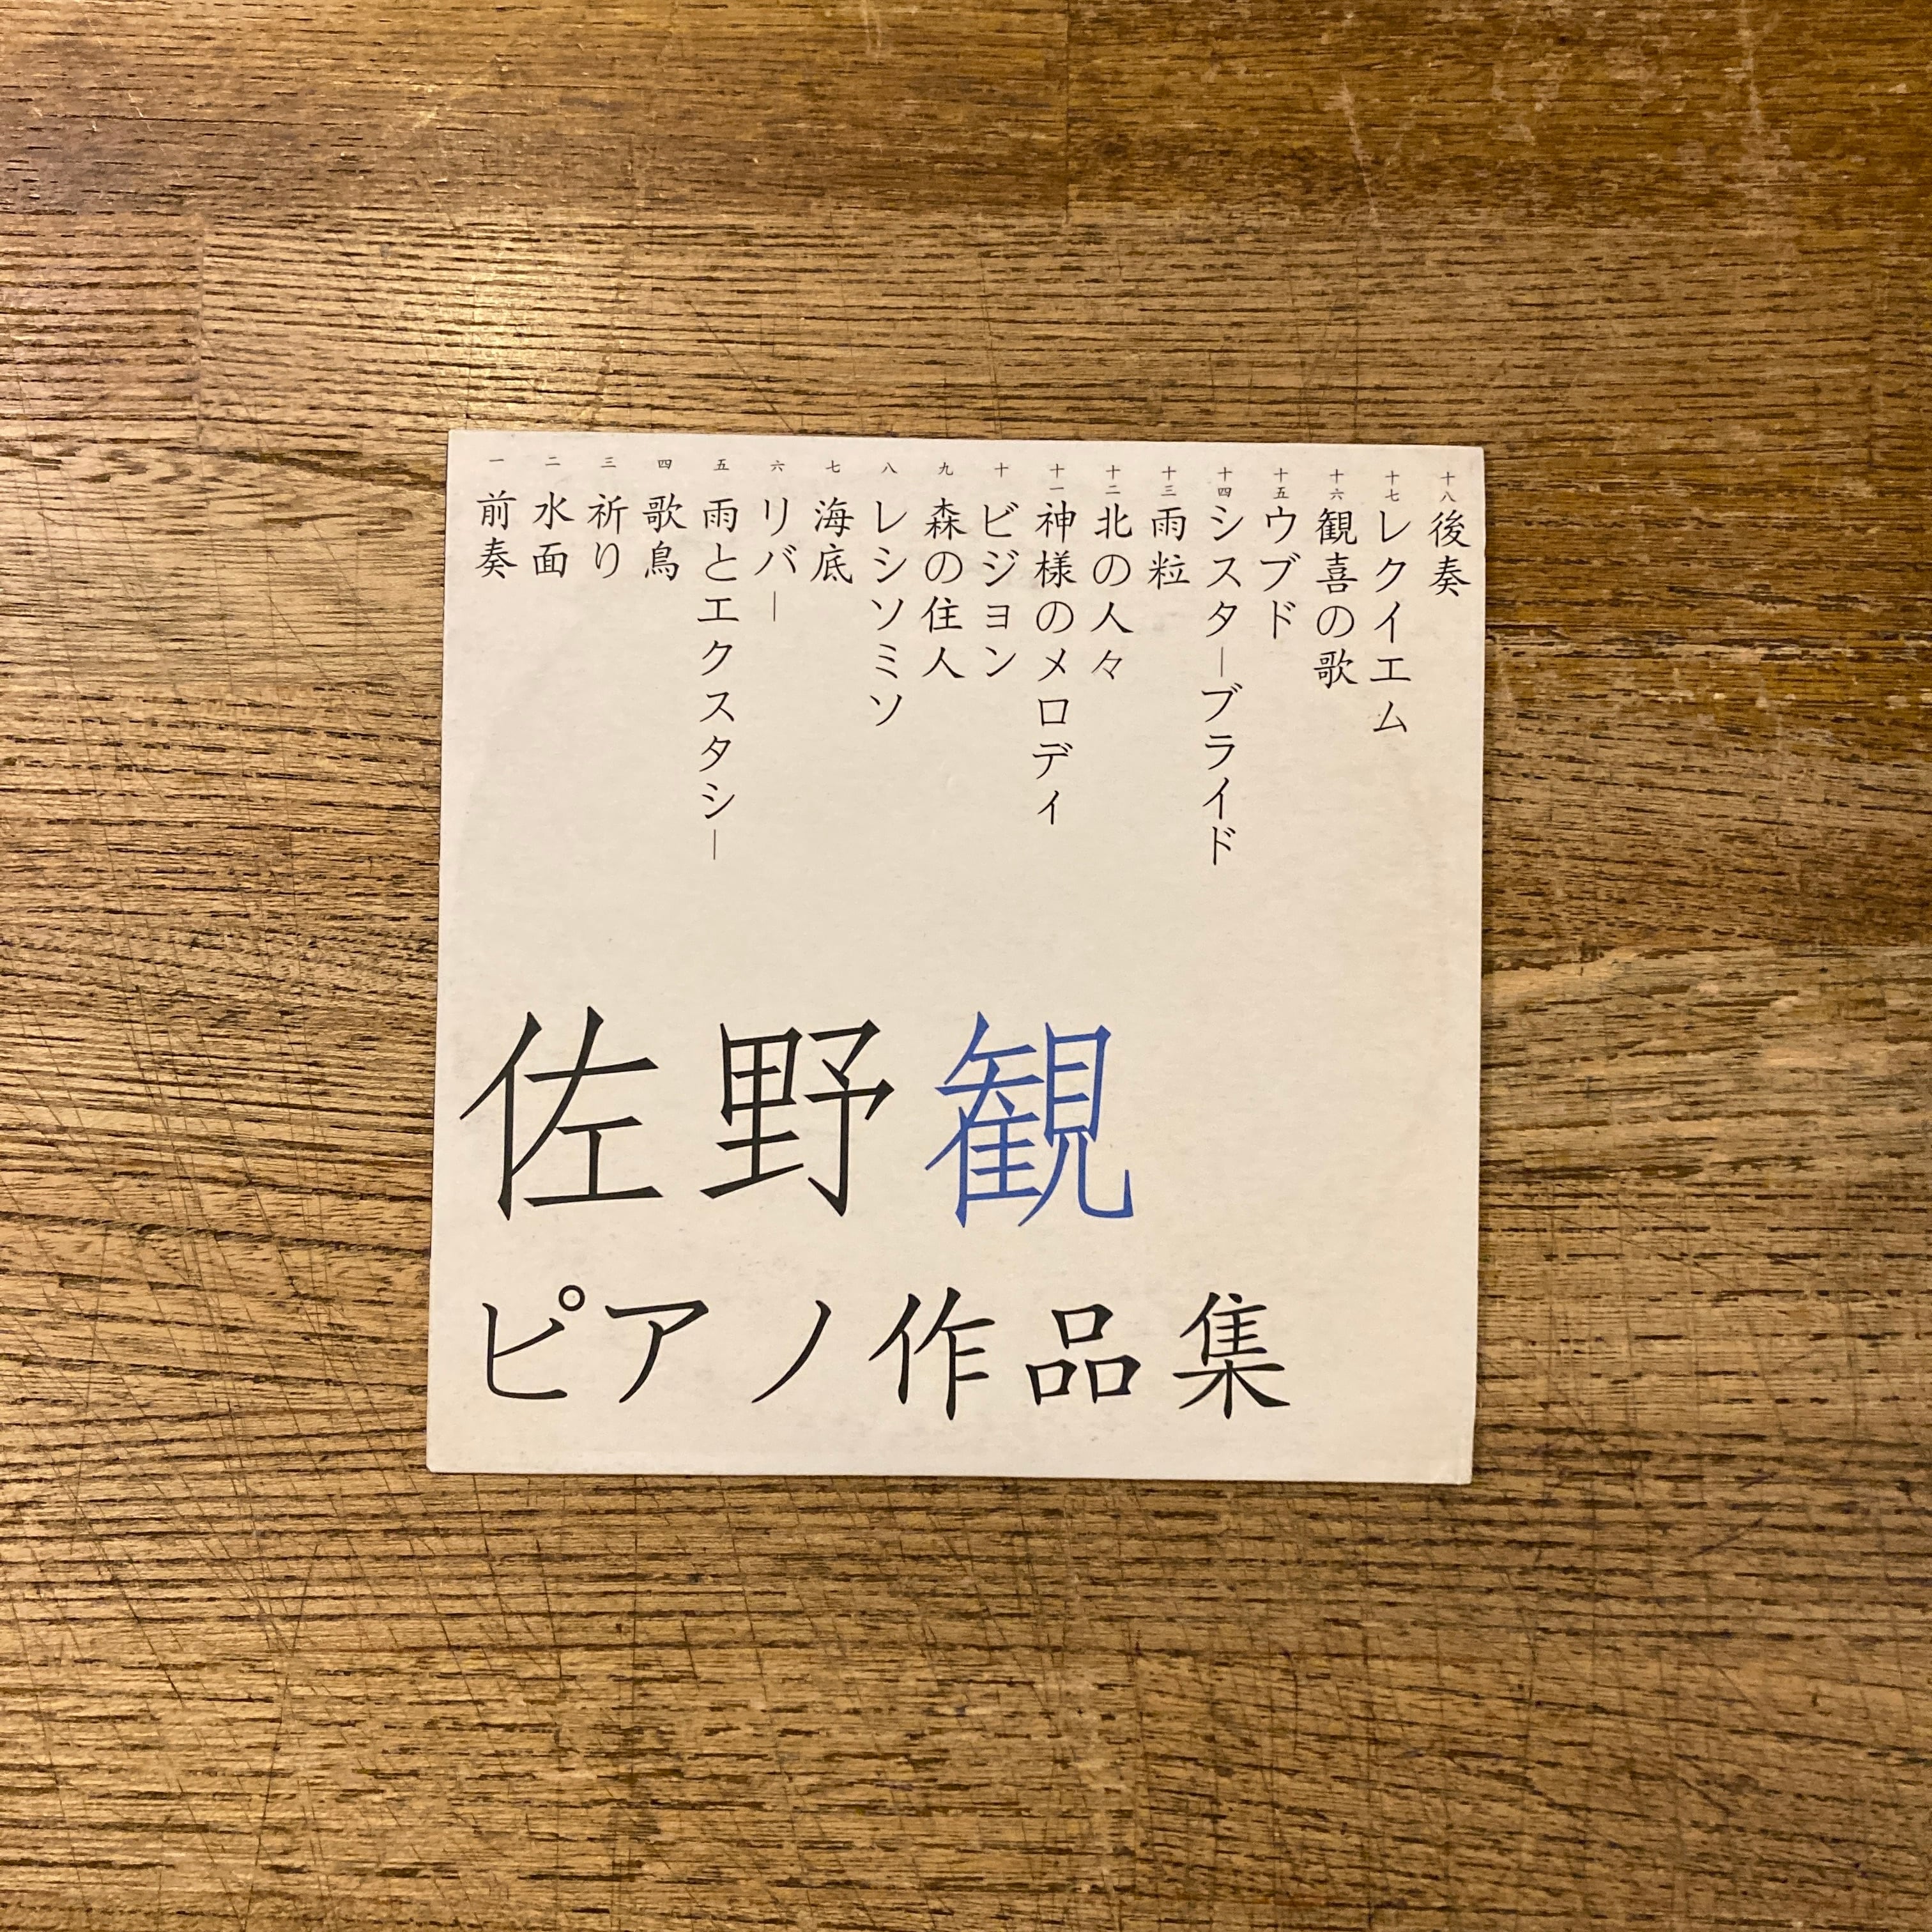 一 前奏
二 水面
三 祈り
四 歌鳥
五 雨とエクスタシー
六 リバー
七 海底
八 レシソミソ
九 森の住人
十 ビジョン
十一 神様のメロディ
十二 北の人々
十三 雨粒
十四 シスターブライド
十五 ウブド
十六 観喜の歌
十七 レクイエム
十八 後奏
佐野観
ピアノ作品集